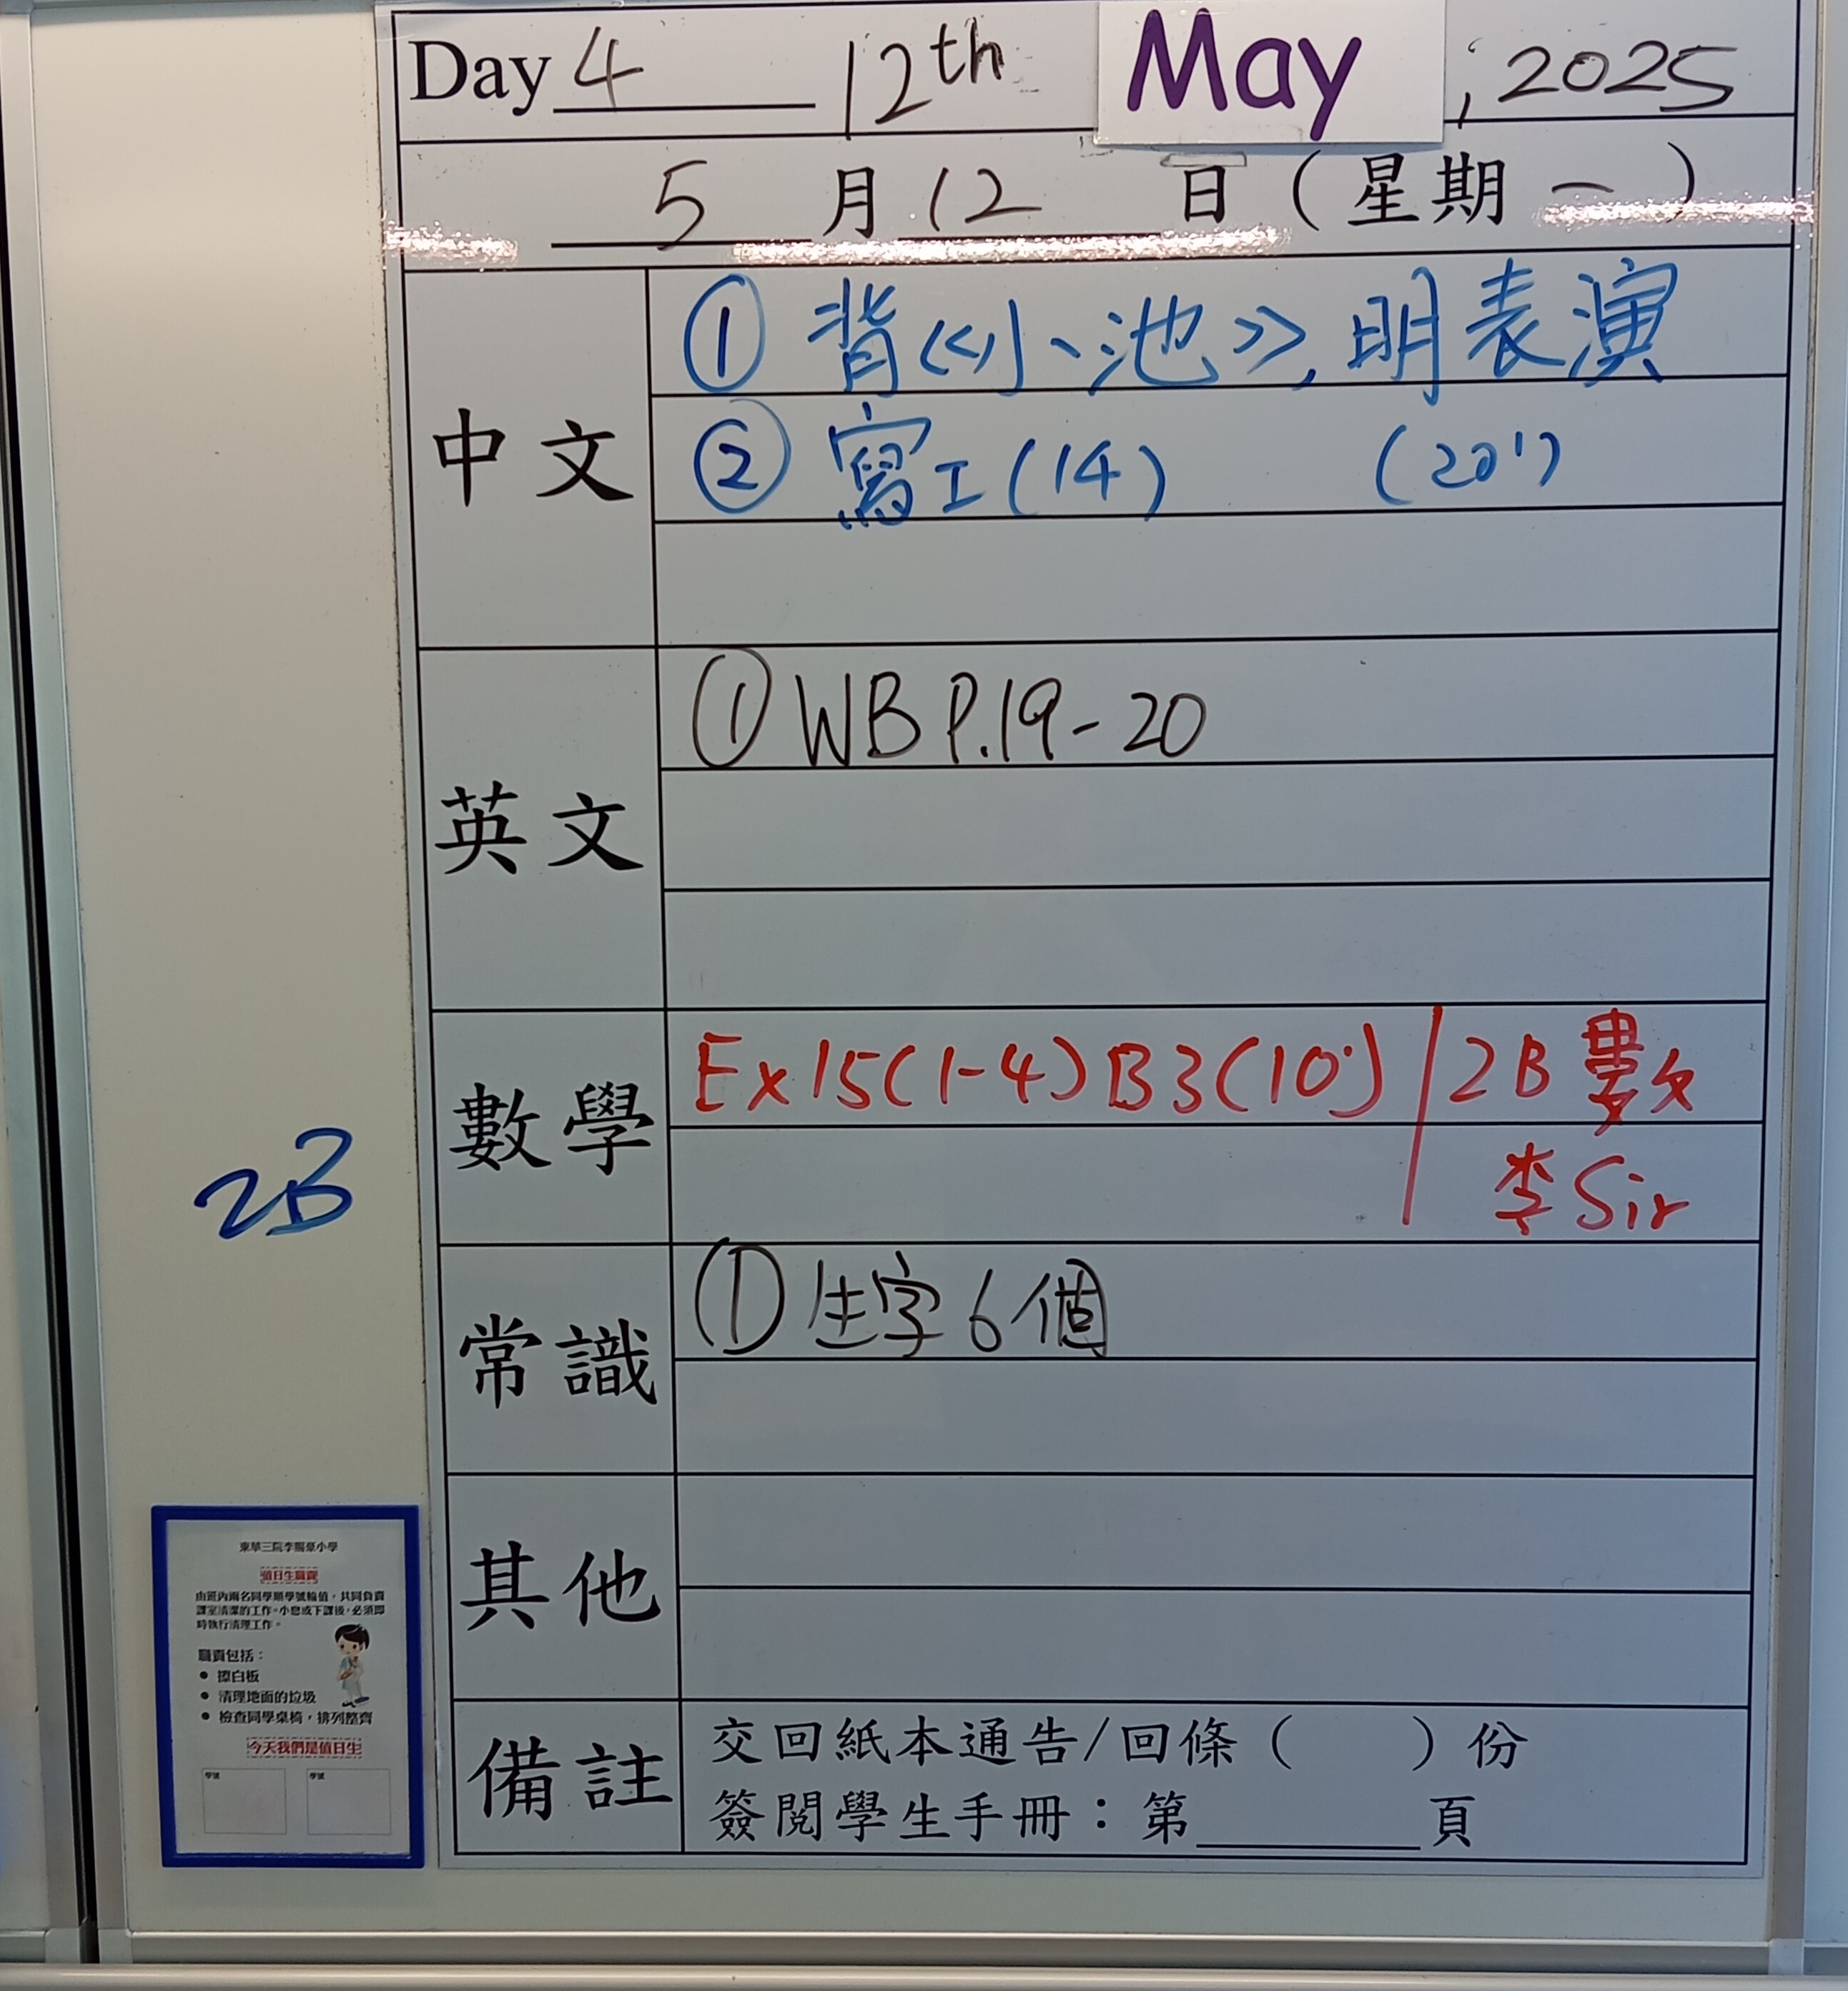 Day 4 12th May, 2025
5月12日(星期一)
中文
① 背《小池》,明表演
② 寫工(14) (20')
英文
① WB P.19-20
數學
Ex15(1-4)B3(10') 2B 數
李Sir
常識
① 生字6個
其他
備註
交回紙本通告/回條( )份
簽閱學生手冊:第______頁
2B
東華三院李賜豪小學
值日生職責
由班內兩名同學順學號輪值,共同負責
課室清潔的工作。小息或下課後,必須即
時執行清理工作。
職責包括:
● 擦白板
● 清理地面的垃圾
● 檢查同學桌椅,排列整齊
今天我們是值日生
學號 學號